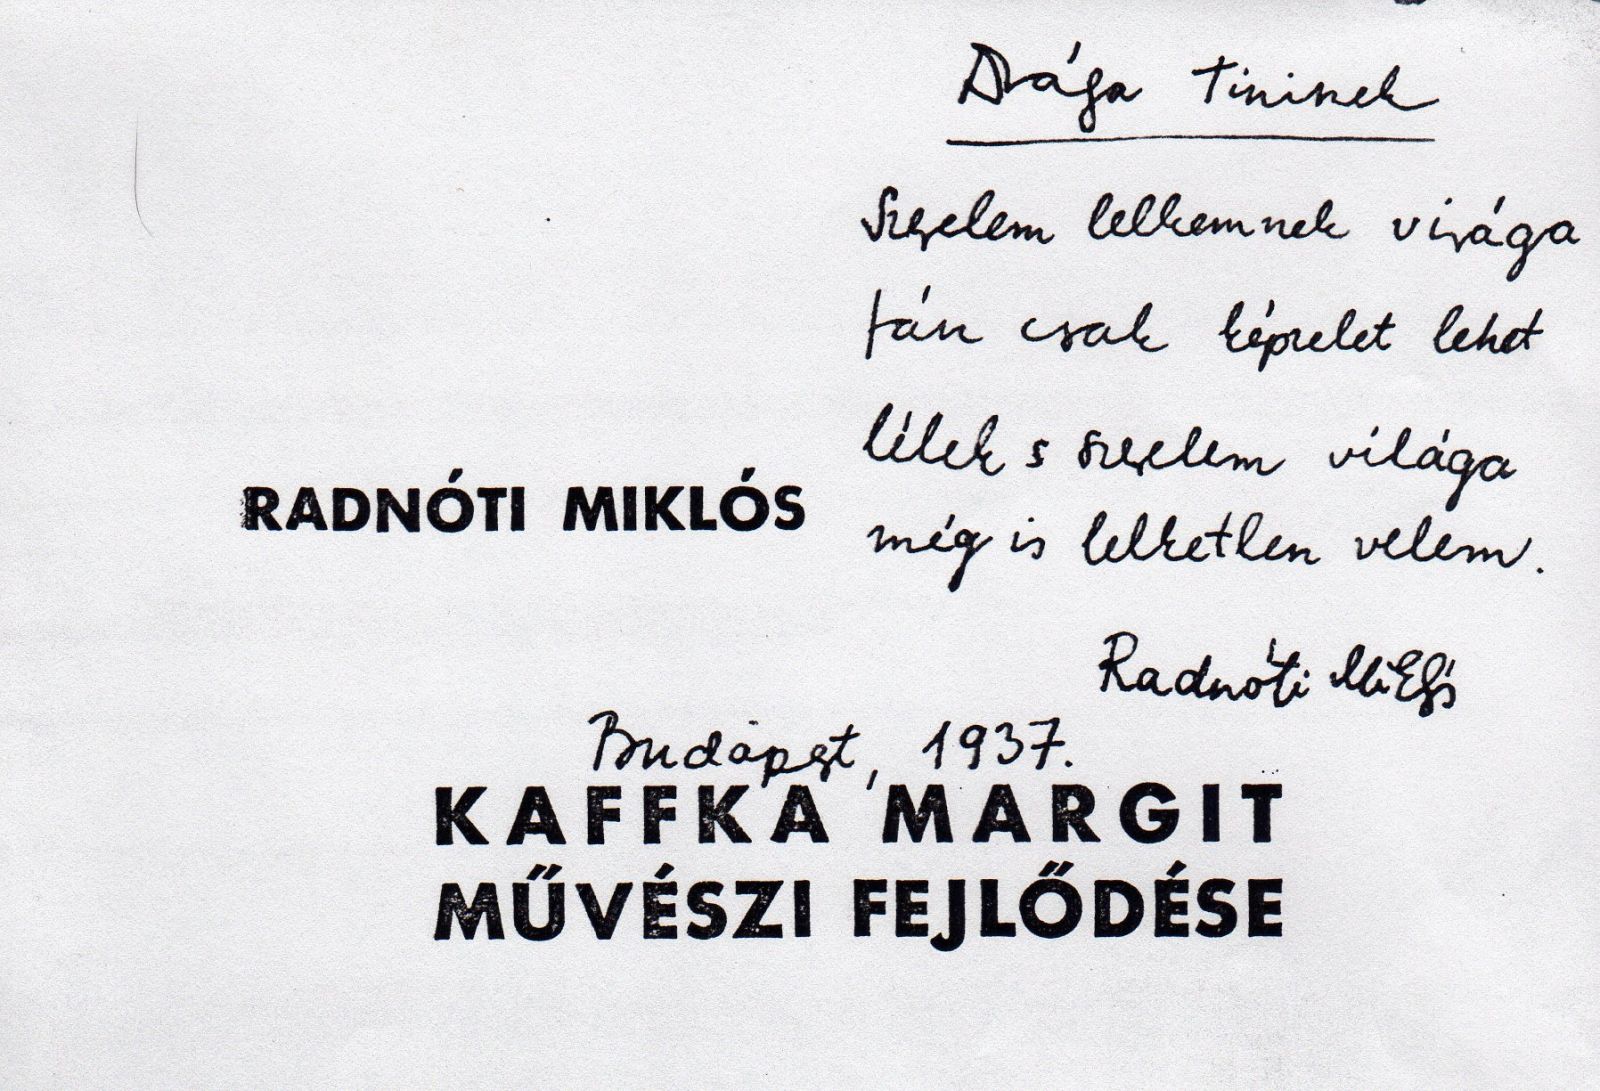 Drága Tininek
Szerelem lelkemnek virága
tán csak képzelet lehet
lélek s szerelem világa
még is lelketlen velem.
RADNÓTI MIKLÓS
Radnóti Miklós
Budapest, 1937.
KAFFKA MARGIT
MŰVÉSZI FEJLŐDÉSE